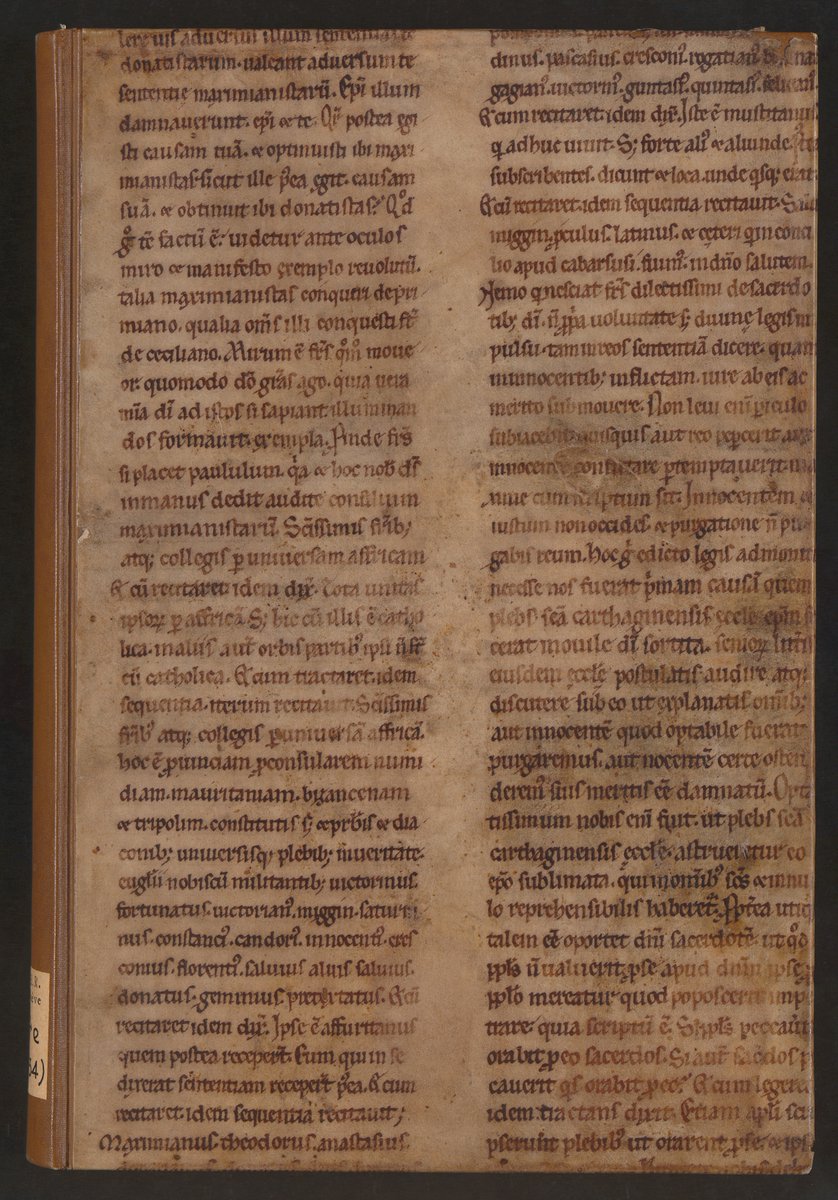 donatistarum. ualeant aduersum te
sententie maximianistarū. Ep̄i illum
damnauerunt. ep̄i & te. Qr̄ postea egi
sti causam tuā. & optinuisti ibi maxi
mianistas. sicut ille p̄ea egit. causam
suā. & obtinuit ibi donatistas? Qd̄
g̊ tē factū ē. uidetur ante oculos
miro & manifesto exemplo reuolutū.
talia maximianistas conqueri de pri
miano. qualia om̄s illi conquesti st̄
de ceciliano. Mirum ē fr̄s qm̊ moue
or. quomodo dō gr̄as ago. quia uera
mīa dī ad istos si sapiant illuminan
dos exempla. Inde fr̄s
si placet paululum. qa & hoc nob̄ dn̄s
in manus dedit audite consilium
maximianistarū. Sc̄issimis fr̄ib;
atq; collegis ꝑ uniuersam affricam
& cū recitaret idem dix̄. Tota unitas
ipsoꝝ ꝑ affricā. S; hic cū illis ē catho
lica. in aliis aut̄ orbis partib; ipsi n̄ st̄
cū catholica. & cum tractaret. idem
sequentia. iterum recitauit. Sc̄issimis
fr̄ib; atq; collegis ꝑ uniuersā affricā.
hoc ē ꝓuinciam ꝓconsularem numi
diam. mauritaniam. bizancenam
& tripolim. constitutis s; & prb̄is & dia
conib; uniuersisq; plebib; in ueritate
euglii nobiscū militantib; uictorinus.
fortunatus. uictorian᷒. miggin. saturni
nus. constanci᷒. candori᷒. innocenti᷒. cres
conius. florenti᷒. saluius. alius saluius.
donatus. geminius. pretextatus. & cū
recitaret idem dix̄. Ipse ē assuritanus
quem postea recepert̄. Eum. qui in se
dixerat sententiam recepert̄ p̄ea. & cum
recitaret. idem sequentia recitauit;
Maximianus. theodorus. anastasius.
dinus. pascasius. cresconi᷒. rogatian᷒.
gagian᷒. uictorin᷒. guntasi᷒. quintasi᷒. felician᷒.
& cum recitaret. idem dix̄. Iste ē mustitanus
q adhuc uiuit. S; forte ali᷒ & aliunde.
subscribentes. dicunt & loca. unde qsq; erat
& cū recitaret. idem sequentia recitauit.
miggin. ꝓculus. latinus. & ceteri q in conci
lio apud cabarsusi. fiunt᷒. in dn̄o salutem.
Nemo q nesciat fr̄s dilectissimi de sacerdo
tib; dī. n̄ ꝓp̄a uoluntate s; diuine legis in
pulsu. tam in reos sententiā dicere. quam
in innocentib; inflictam. iure ab eis ac
merito submouere. Non leui eni̅ ꝑiculo
subiacebit quisquis aut reo pepercerit aut
innocentē ꝑtemptauerit.
cum scriptum sit. Innocentem &
iustum non occides. & purgatione n̄ pur
gabis reum. Hoc g̊ edicto legis admoniti
necesse nos fuerat p̄mani causā quem
plebs sc̄a carthaginensis eccle ep̄m
cerat in ouile dī sortita. senioꝝ litt̄is
eiusdem eccle postulatis audire atq;
discutere. sub eo ut explanatis om̄ib;
aut innocentē quod optabile fuerat
purgaremus. aut nocentē certe osten
derem᷒ suis meritis eē damnatū. Opta
tissimum nobis eni̅ fuit. ut plebs sc̄a
carthaginensis eccle. astrueretur eo
ep̄o sublimata. qui in om̄ib; sc̄s & in nul
lo reprehensibilis haberet᷒. Ꝓpt̄ea utiq;
talem eē oportet dn̄i sacerdotē. ut qd̊
ppl̄s n̄ ualuerit ꝓ se apud dn̄m ipse ꝓ
ppl̄o mereatur quod poposcerit imp
trare. quia scriptū ē. Si ppl̄s peccauit
orabit ꝓ eo sacerdos. Si aut̄ sac̄dos p
cauerit qs orabit ꝓ eo? & cum legeret
idem tractans dixit. Etiam apl̄i sc
pserunt plebib; ut orarent ꝓ se. & ipsi